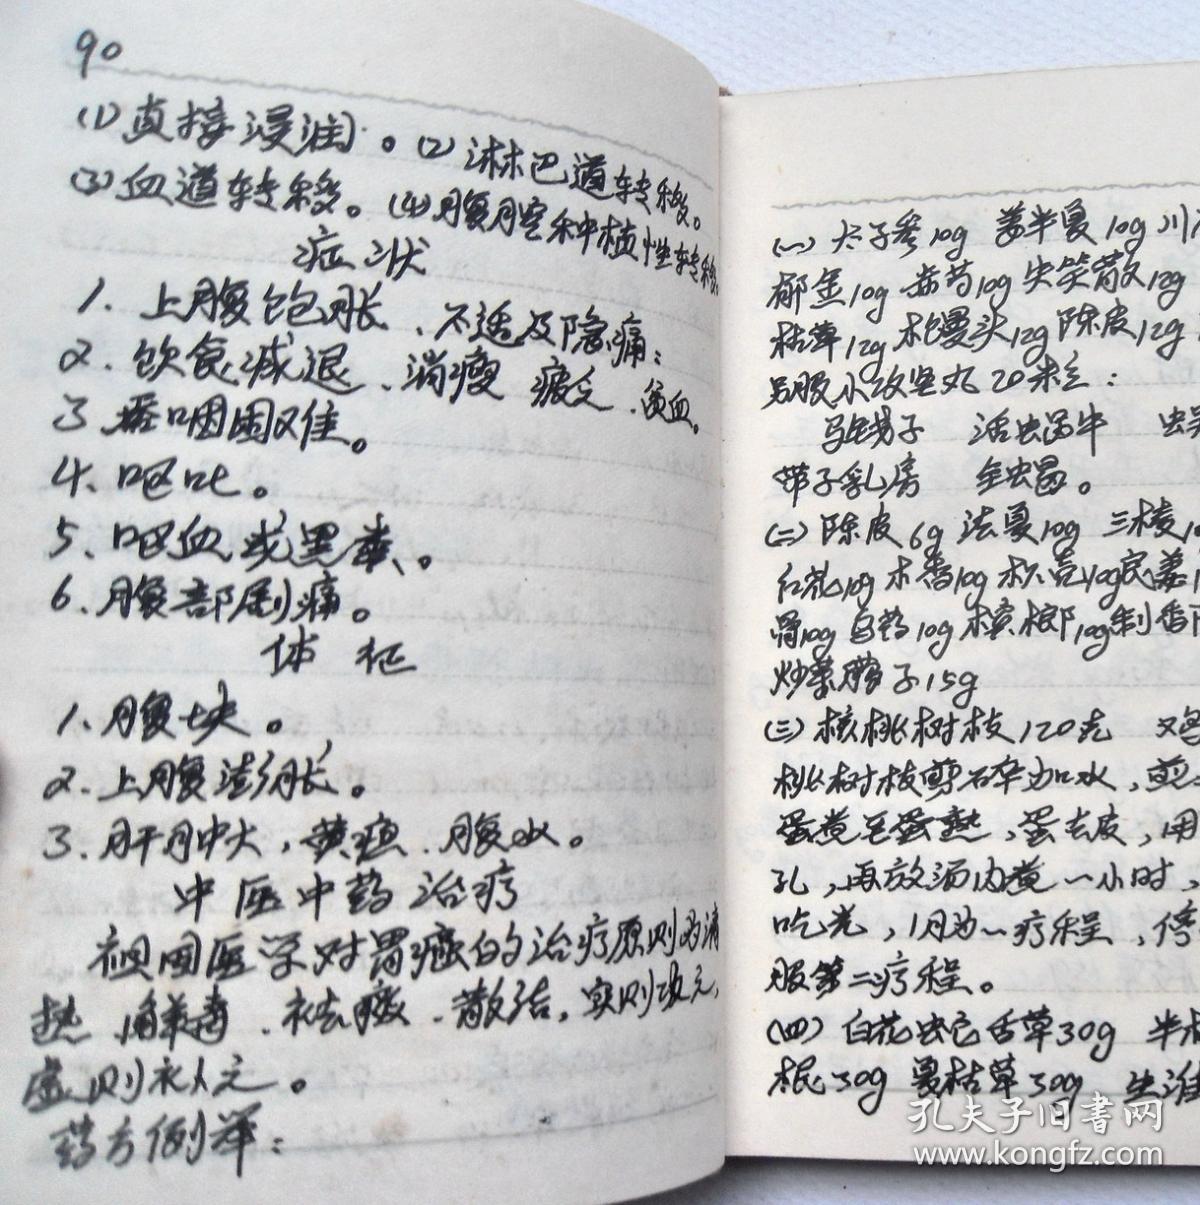 90
(1)直接浸润。(2)淋巴道转移。
(3)血道转移。(4)腹腔种植性转移
症状
1.上腹饱胀、不适及隐痛;
2.饮食减退、消瘦 疲乏、贫血。
3 吞咽困难。
4、呕吐。
5、呕血或黑粪。
6、腹部剧痛。
体 征
1、腹块。
2、上腹澎胀。
3、肝肿大,黄疸、腹水。
中医中药治疗
祖国医学对胃癌的治疗原则为清
热、解毒、祛瘀、散结,实则攻之,
虚则补之。
药方例举:
(一)太子参10g 姜半夏10g 川
郁金10g 赤芍10g 失笑散12g
枯草12g 木馒头12g 陈皮12g
另服小攻坚丸20粒:
马钱子 活蜗牛
带子蜂房 全虫
(二)陈皮6g 法夏10g 三棱10
红花10g 木香10g 枳壳10g
骨10g 乌药10g 槟榔10g 制香
炒莱菔子15g
(三)核桃树枝120克 鸡
桃树枝剪碎加水,煎
蛋煮至蛋熟,蛋去皮,用
孔,再放汤内煮一小时,
吃光,1月为一疗程,停
服第二疗程。
(四)白花蛇舌草30g 半
根30g 夏枯草30g 生
孔夫子旧书网
www.kongfz.com